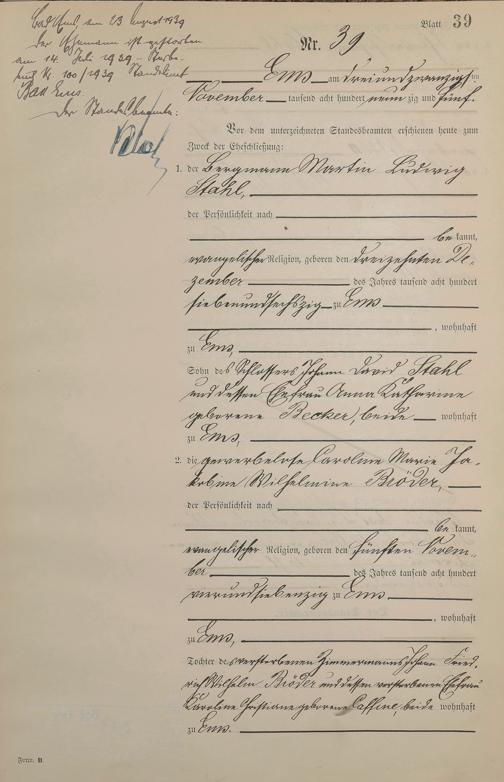 Bad Ems, am 23 August 1939
Der Ehemann ist gestorben
am 14. Juli 1939 – Sterbe-
Nr. 100/1939 Standesamt
Bad Ems.
Der Standesbeamte:
Blatt 39
Nr. 39
Ems am dreiundzwanzigsten
November tausend acht hundert neunzig und fünf.
Vor dem unterzeichneten Standesbeamten erschienen heute zum
Zweck der Eheschließung:
1. der Bergmann Martin Ludwig
Stahl,
der Persönlichkeit nach
be kannt,
evangelischer Religion, geboren den dreizehnten De-
zember des Jahres tausend acht hundert
siebenundsechszig zu Ems
, wohnhaft
zu Ems,
Sohn des Schlossers Johann David Stahl
und dessen Ehefrau Anna Katharine
geborene Becker, beide wohnhaft
zu Ems,
2. die gewerbelose Caroline Marie Ja-
kobine Wilhelmine Bröder,
der Persönlichkeit nach
be kannt,
evangelischer Religion, geboren den fünften Novem-
ber des Jahres tausend acht hundert
vierundsiebenzig zu Ems
, wohnhaft
zu Ems,
Tochter des verstorbenen Zimmermanns Johann Fried-
rich Wilhelm Bröder und dessen verstorbenen Ehefrau
Karoline Christiane geborene beide wohnhaft
zu Ems.
Form. B